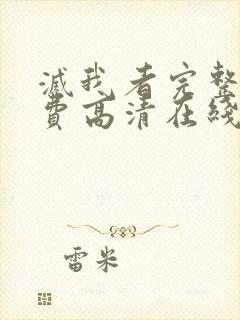 滅我看完整
費高清在綫
雷米